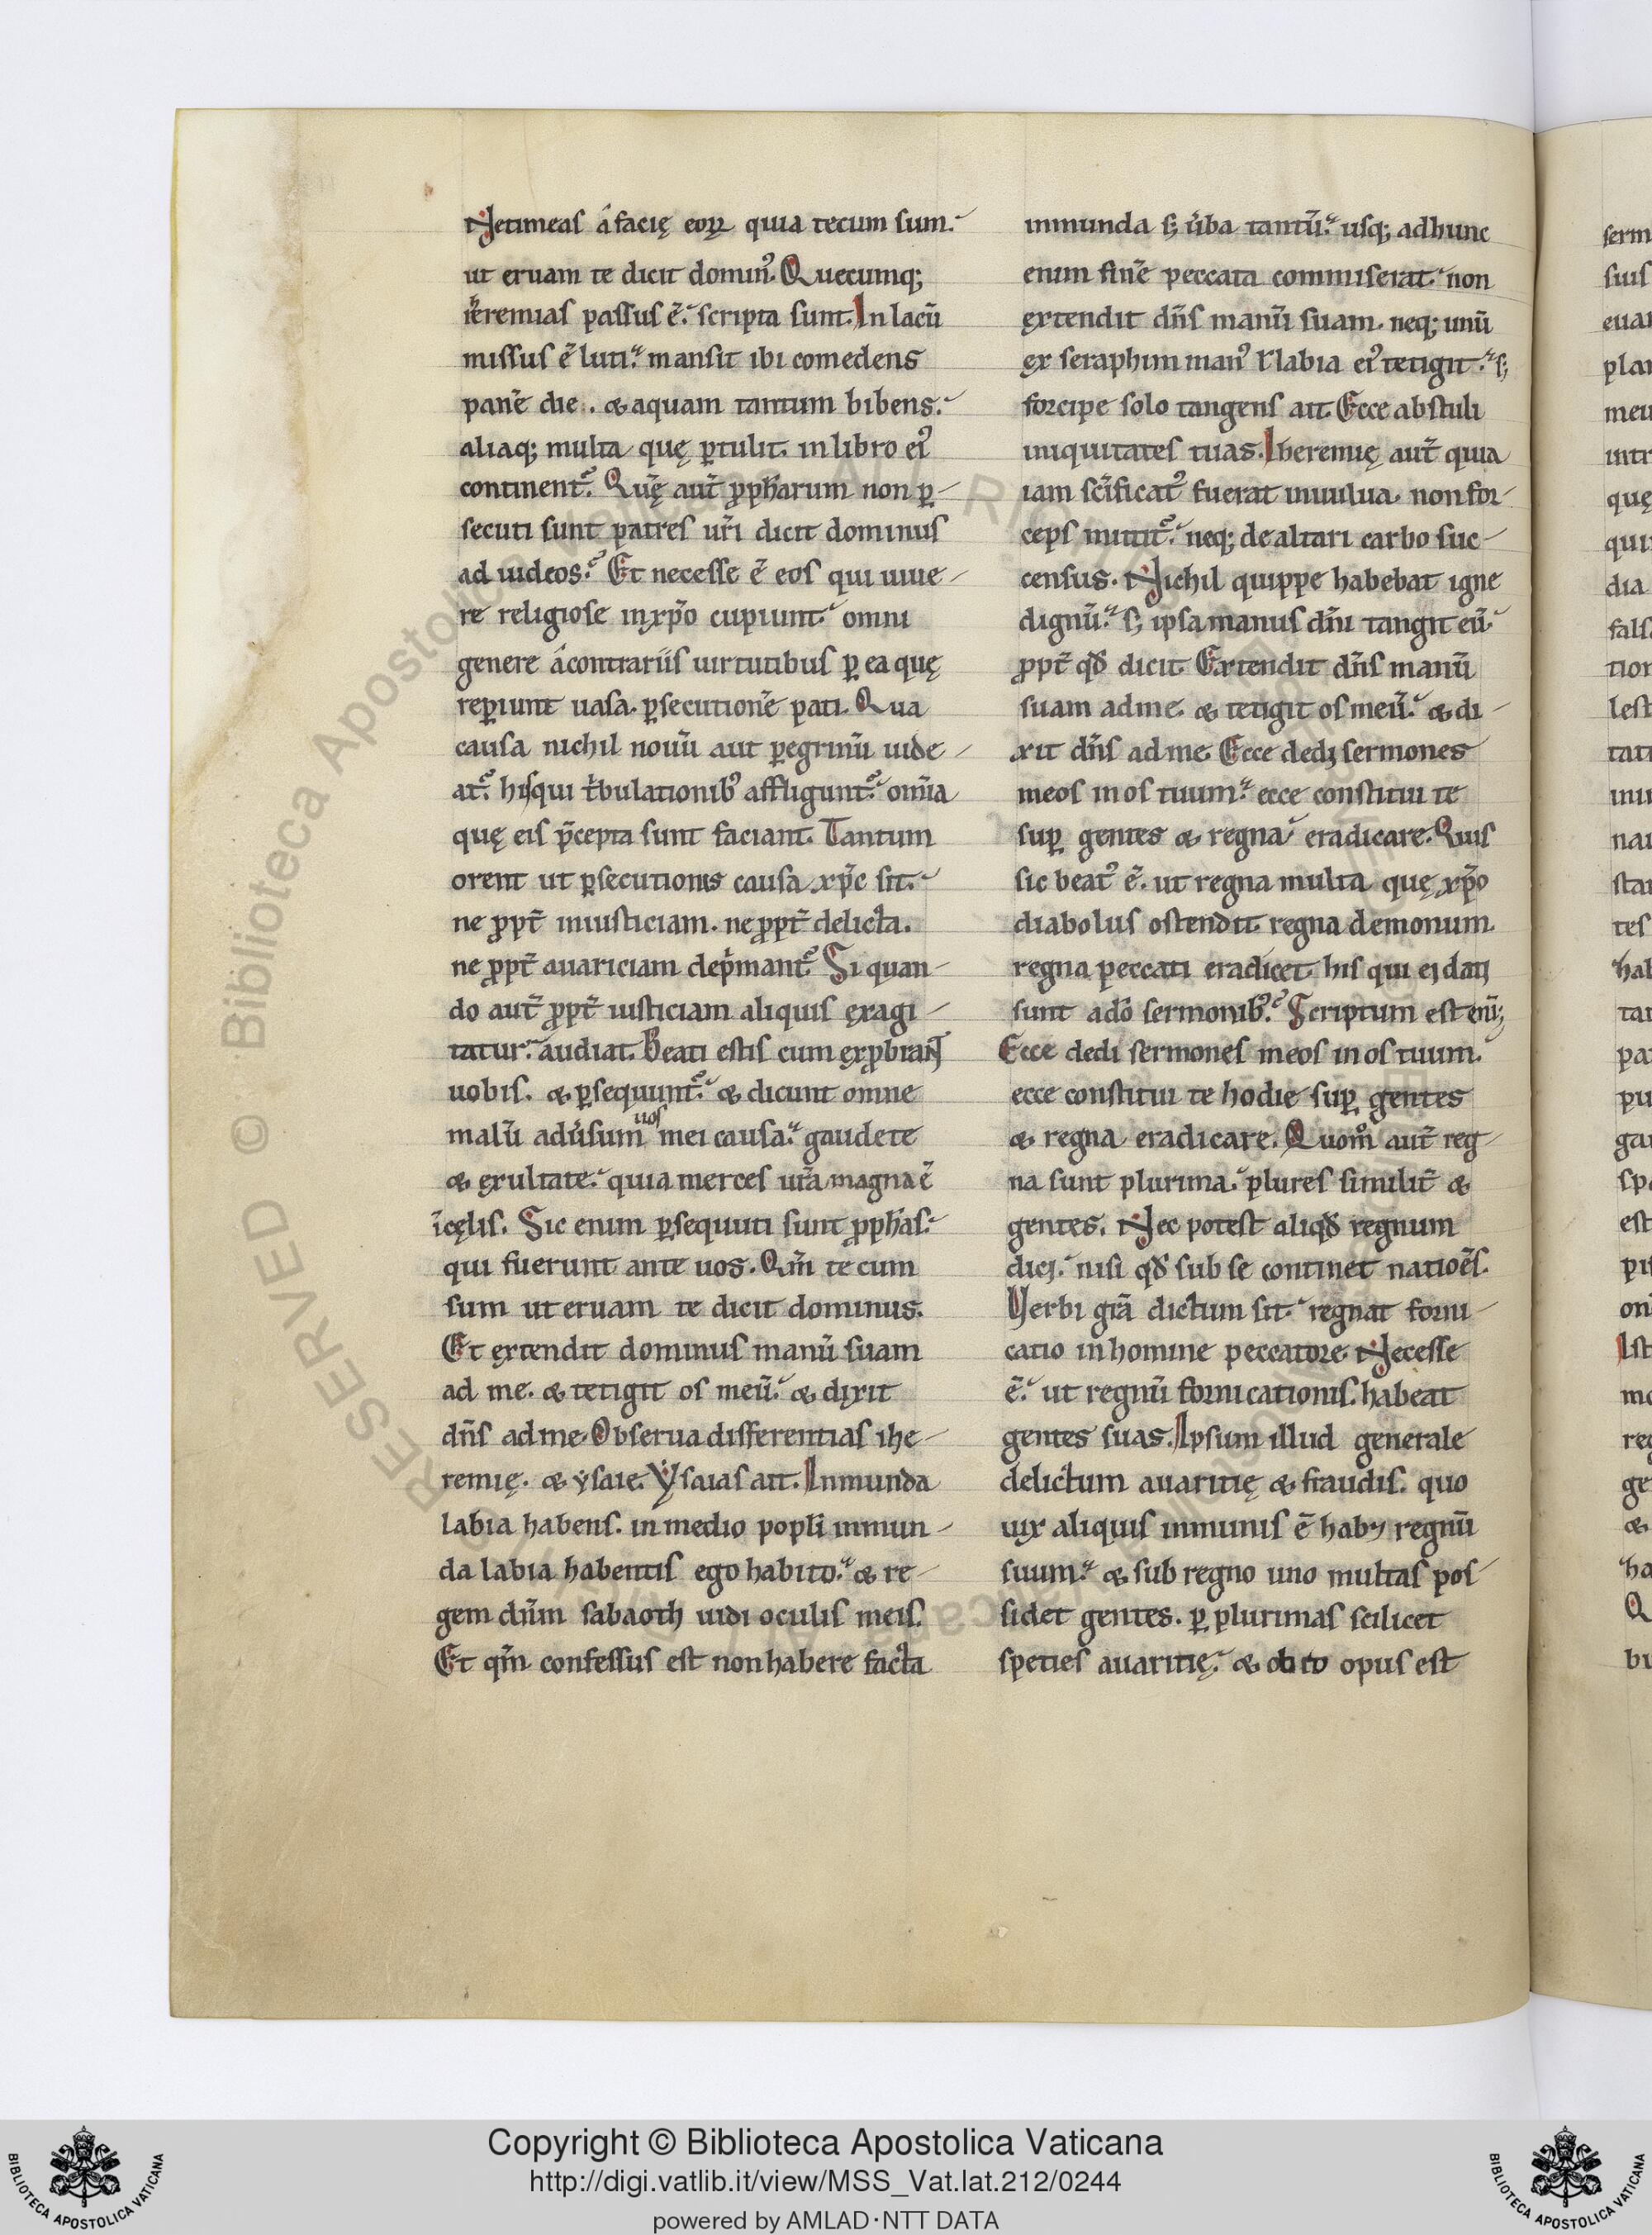 Netimeas á facię eorꝝ quia tecum sum.
ut eruam te dicit domin᾽. Quecumq;
ieremias passus ē. scripta sunt. In lacū
missus ē luti. mansit ibi comedens
panē die. & aquam tantum bibens.
aliaq; multa quę ꝑtulit. in libro ei᾽
continent᷑. Quę aut̄ ꝓph̄arum non ꝑ-
secuti sunt patres ur̄i dicit dominus
ad iudeos. Et necesse ē eos qui uiue-
re religiose in xp̄o cupiunt. omni
genere á contrariis uirtutibus ꝑ ea quę
reꝑiunt uasa. ꝑsecutionē pati. Qua
causa nichil nouū aut ꝑegrinū uide-
at᷑. hisqui t'bulationib᾽ affligunt᷑. om̄ia
quę eis p̄cepta sunt faciant. Tantum
orent ut ꝑsecutionis causa xp̄c sit.
ne ꝓpt̄ iniusticiam. ne ꝓpt̄ delicta.
ne ꝓpt̄ auariciam dep'mant᷑. Si quan-
do aut̄ ꝓpt̄ iusticiam aliquis exagi-
tatur. audiat. Beati estis cum exꝓbrant
uobis. & ꝑsequunt᷑. & dicunt omne
malū adu'sum uos mei causa. gaudete
& exultate. quia merces ur̄a magna ē
ī cęlis. Sic enim ꝑsequuti sunt ꝓph̄as.
qui fuerunt ante uos. Qm̄ te cum
sum ut eruam te dicit dominus.
Et extendit dominus manū suam
ad me. & tetigit os meū. & dixit
dn̄s ad me. Obserua differentias ihe-
remię. & ysaie. Ysaias ait. Inmunda
labia habens. in medio popli inmun-
da labia habentis ego habito. & re-
gem dn̄m sabaoth uidi oculis meis.
Et qm̄ confessus est non habere facta
inmunda s; u'ba tantū. usq; ad hunc
enim finē peccata commiserat. non
extendit dn̄s manū suam. neq; unū
ex seraphim man᾽ ł labia ei᾽ tetigit. s;
forcipe solo tangens ait. Ecce abstuli
iniquitates tuas. Iheremię aut̄ quia
iam sc̄ificat᾽ fuerat in uulua. non for-
ceps mittit᷑. neq; de altari carbo suc-
census. Nichil quippe habebat igne
dignū. s; ipsa manus dn̄i tangit eū.
ꝓpt̄ qđ dicit. Extendit dn̄s manū
suam ad me. & tetigit os meū. & di-
xit dn̄s ad me. Ecce dedi sermones
meos in os tuum. ecce constitui te
suꝑ gentes & regna eradicare. Quis
sic beat᾽ ē. ut regna multa quę xp̄o
diabolus ostendit. regna demonum.
regna peccati eradicet. his qui ei dati
sunt a dō sermonib᾽. Scriptum est enī;
Ecce dedi sermones meos in os tuum.
ecce constitui te hodie suꝑ gentes
& regna eradicare. Quom̊ aut̄ reg-
na sunt plurima. plures similit̄ &
gentes. Nec potest aliqđ regnum
dici. nisi qđ sub se continet natioēs.
Verbi grā dictum sit. regnat forni-
catio in homine peccatore. Necesse
ē. ut regnū fornicationis. habeat
gentes suas. Ipsum illud generale
delictum auaritię & fraudis. quo
uix aliquis inmunis ē hab; regnū
suum. & sub regno uno multas pos-
sidet gentes. ꝑ plurimas scilicet
speties auaritię. & ob id opus est
Copyright © Biblioteca Apostolica Vaticana
http://digi.vatlib.it/view/MSS_Vat.lat.212/0244
powered by AMLAD·NTT DATA
BIBLIOTECA APOSTOLICA VATICANA
BIBLIOTECA APOSTOLICA VATICANA